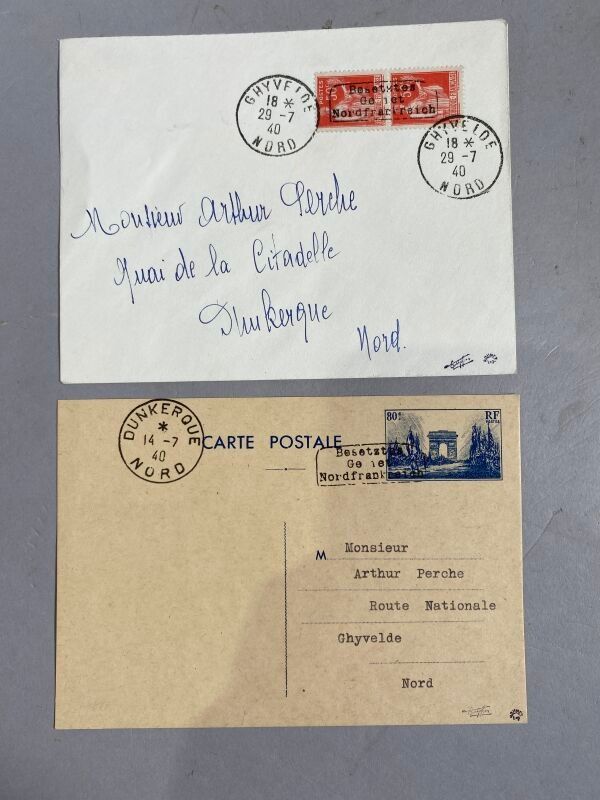 GHYVELDE
18 *
29 -7
40
NORD
POSTES
50c
Besetztes
Gebiet
Nordfrankreich
GHYVELDE
18 *
29 -7
40
NORD
Monsieur Arthur Perche
Quai de la Citadelle
Dunkerque
Nord.
DUNKERQUE
*
14 -7
40
NORD
CARTE POSTALE
80c
RF
POSTES
Besetztes
Ge iet
Nordfrankreich
M Monsieur
Arthur Perche
Route Nationale
Ghyvelde
Nord